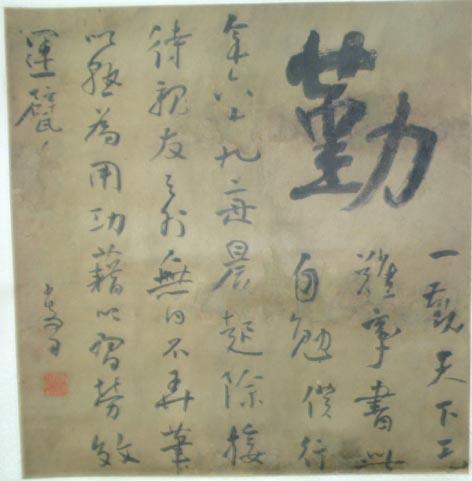 勤
一勤天下无
難事書此
自勉僕行
年六十九每晨起除接
待親友之外無日不弄筆
以為用功藉以習勞效
運甓